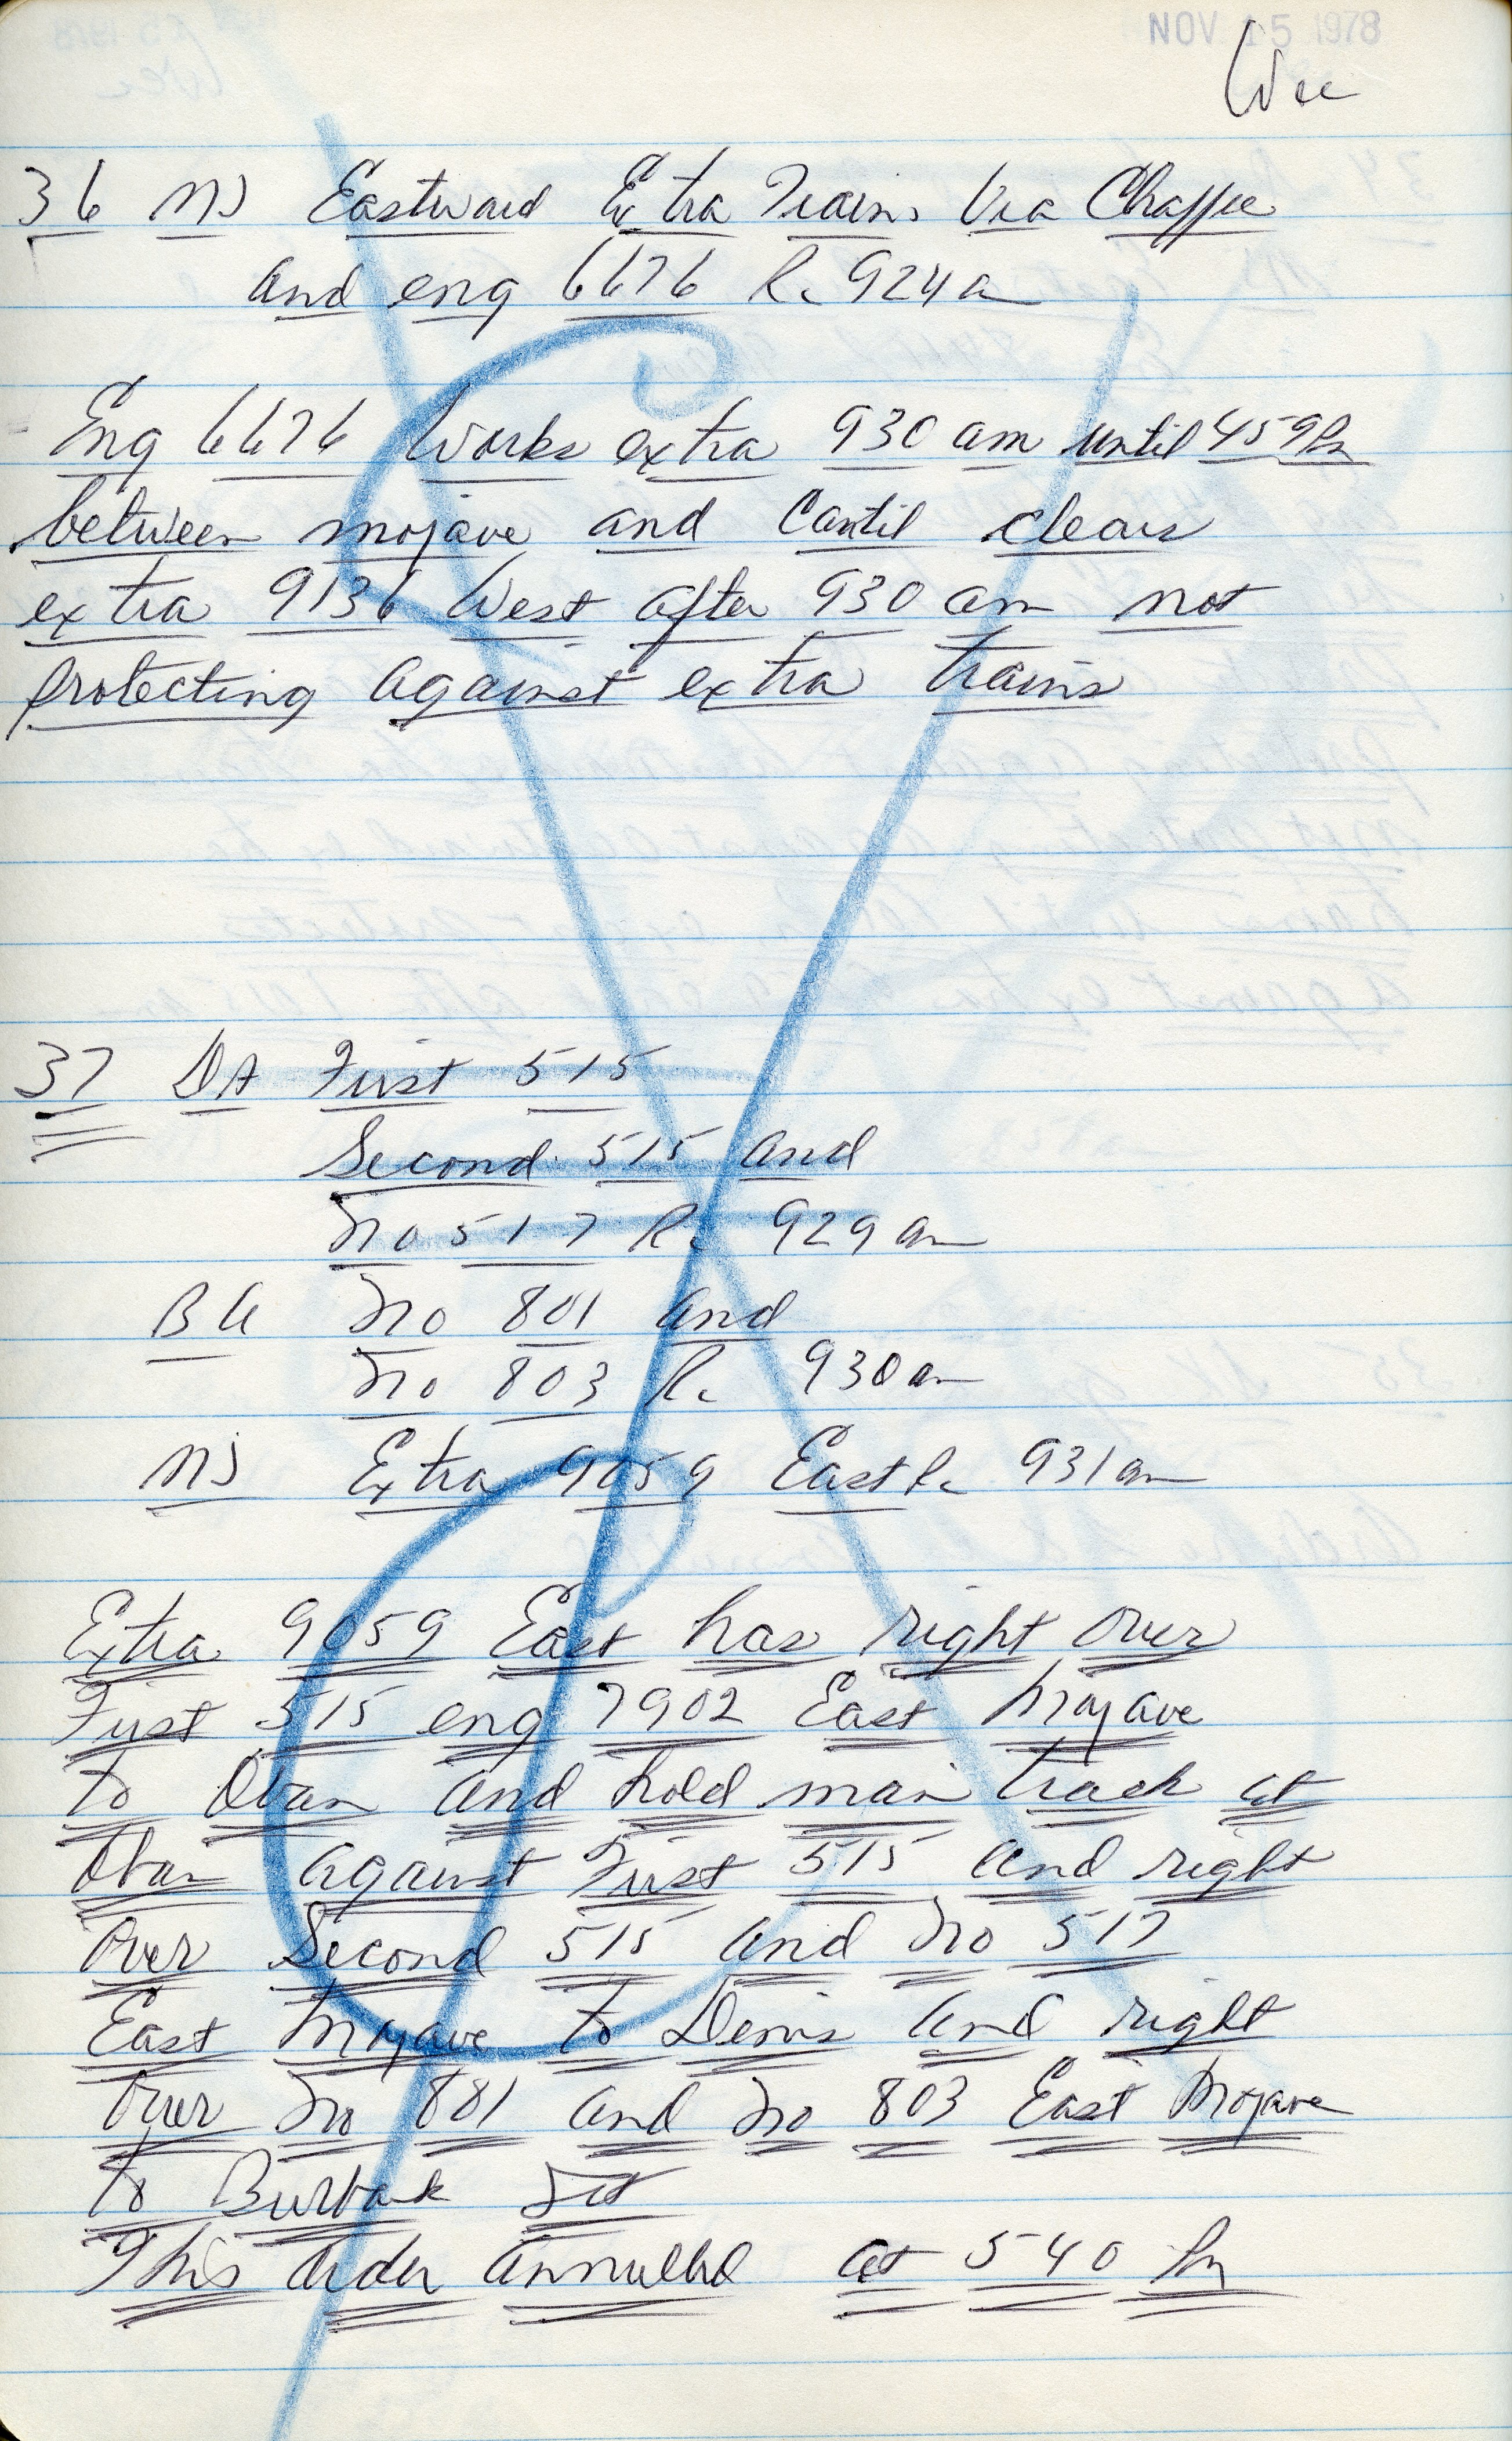 NOV 15 1978
36 MJ Eastward Extra Trains Via Chaffee
and eng 6676 R. 924 am
Eng 6676 Works extra 930 am until 459 Pm
between mojave and Cantil clears
extra 9136 West after 930 am not
protecting against extra trains
37 DA First 515
Second 515 and
No 517 R. 929 am
BU No 801 and
No 803 R. 930 am
MJ Extra 9059 East R. 931 am
Extra 9059 East has right over
First 515 eng 7902 East Mojave
to Oban and hold main track at
Oban against First 515 and right
Over Second 515 and No 517
East Mojave to Denis and right
Over No 881 and No 803 East Mojave
to Burbank Jct
This order annulled at 540 Pm